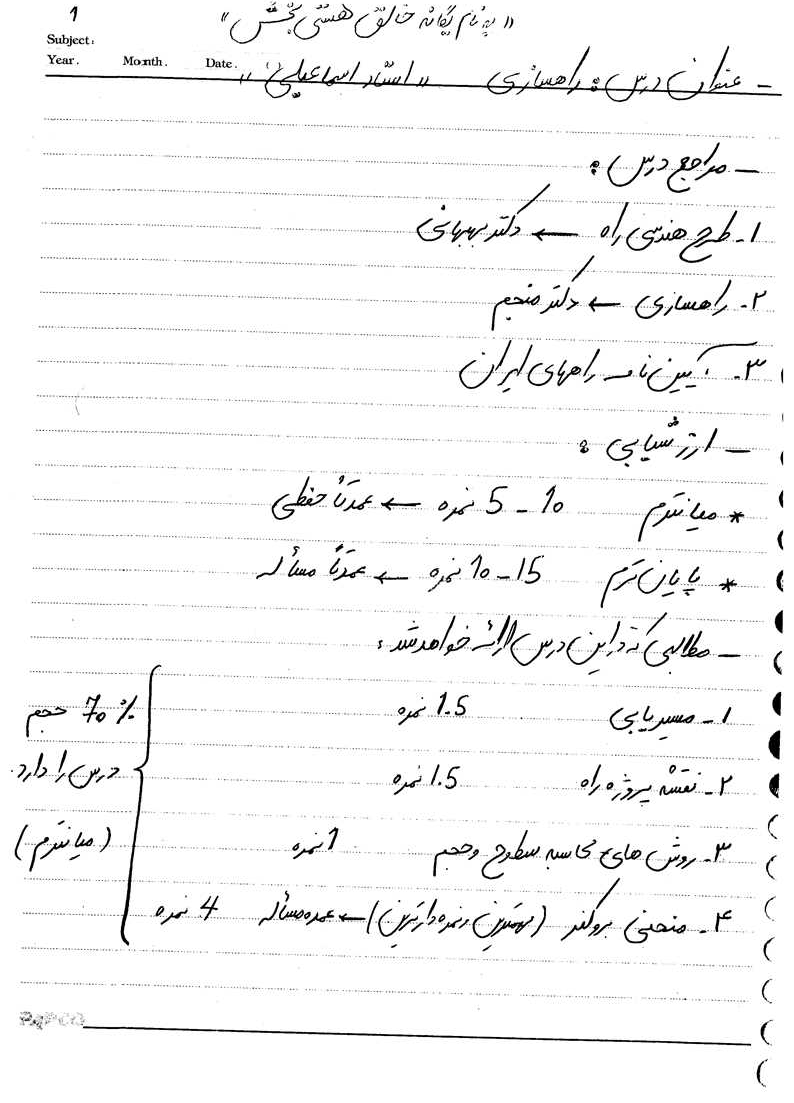 1
« به نام یگانه خالق هستی بخش »
Subject:
Year. Month. Date.
- عنوان درس: راهسازی « استاد اسماعیلی »
- مراجع درس:
۱- طرح هندسی راه ← دکتر بهبهانی
۲- راهسازی ← دکتر منجم
۳- آیین نامه راههای ایران
- ارزشیابی:
* میانترم 10 - 5 نمره ← عمدتاً حفظی
* پایان ترم 15 - 10 نمره ← عمدتاً مسأله
- مطالبی که در این درس ارائه خواهد شد:
۱- مسیریابی 1.5 نمره
۲- نقشه پروژه راه 1.5 نمره
۳- روش های محاسبه سطوح و حجم 1 نمره
۴- منحنی بروکنر (مهمترین و نمره دارترین) ← عمده مسأله 4 نمره
70 % حجم
درس را دارد.
(میانترم)